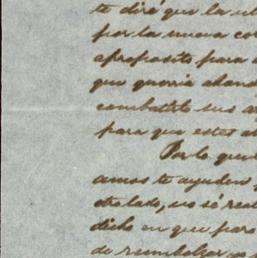 te diré que la ul
por la nueva con
aproposito para
que queria aband
combatirte sus a
para que estes al
Por lo que
amos te ayuden
otro lado, no sé real
dicho en que para
de reembolzar